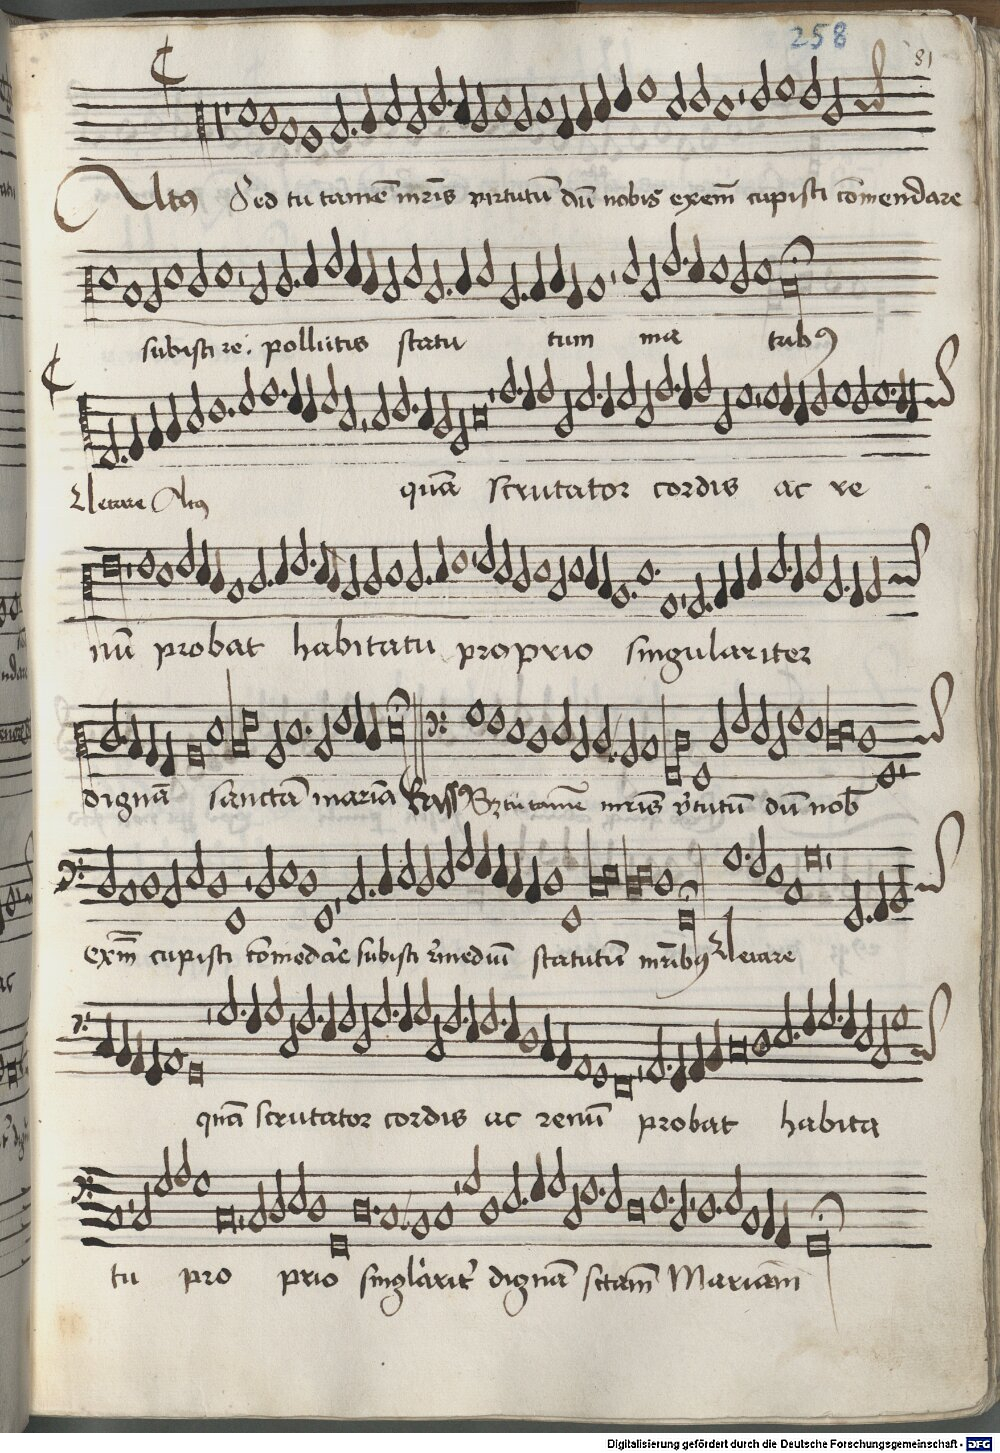 258
81
Altus Sed tu tamē mr̄is virtutū dū nobis exem̄ cupisti cōmendare
subisti re. pollutis statu tum ma trib9
Letare Altus quā scrutator cordis ac re
nū probat habitatu proprio singulariter
dignā sanctā mariā Bass9 Sz tu tamē mr̄is v̄tutū dū nob
exm̄ cupisti cōmēdar̄e subisti r̄mediū statutū mr̄ib9 Letare
quā scrutator cordis ac renū probat habita
tu pro prio singl'arit' dignā sctam̄ Mariam
Digitalisierung gefördert durch die Deutsche Forschungsgemeinschaft - DFG